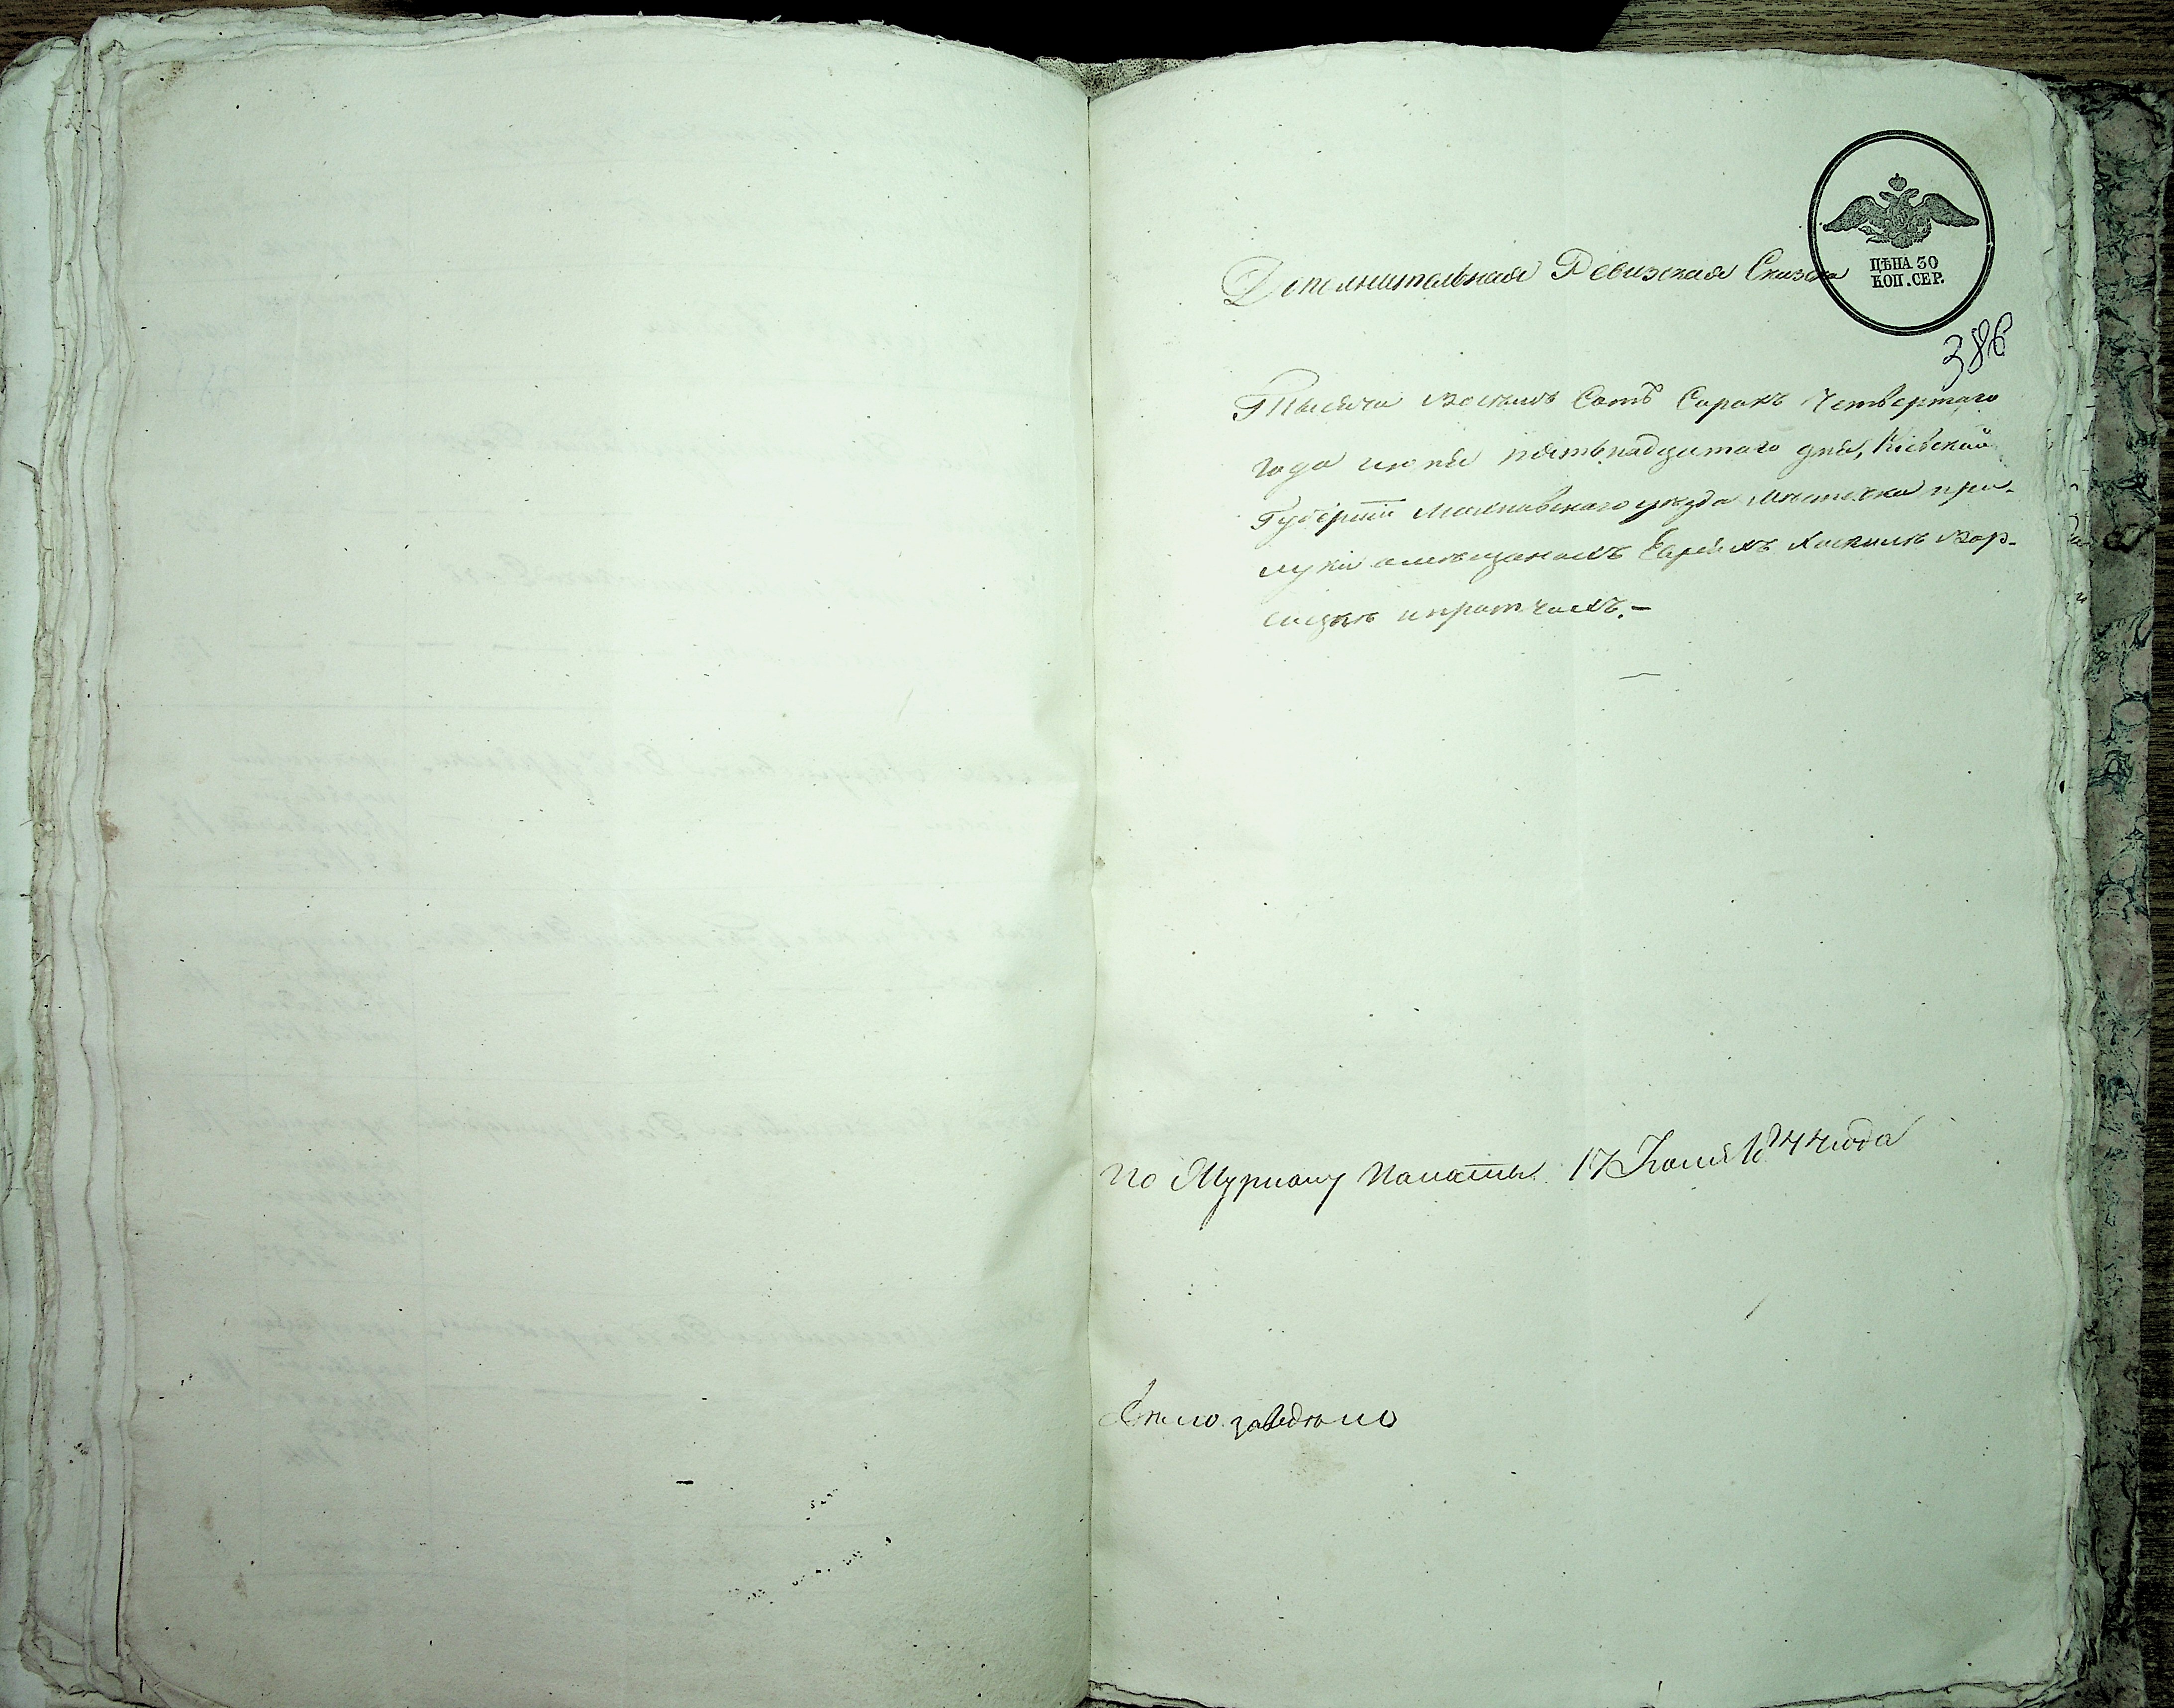 ЦѢНА 30
КОП. СЕР.
Дополнительная Ревизская Сказка
386
Тысяча восемь Сотъ Сорокъ Четвертаго
года июня пятьнадцатаго дня, Кіевской
Губерніи Липовецкаго уезда местечка при-
луки омещанахъ Евреяхъ
ипротчихъ. —
По Журналу Палаты 17 Іюля 1844 года
Дело заведено